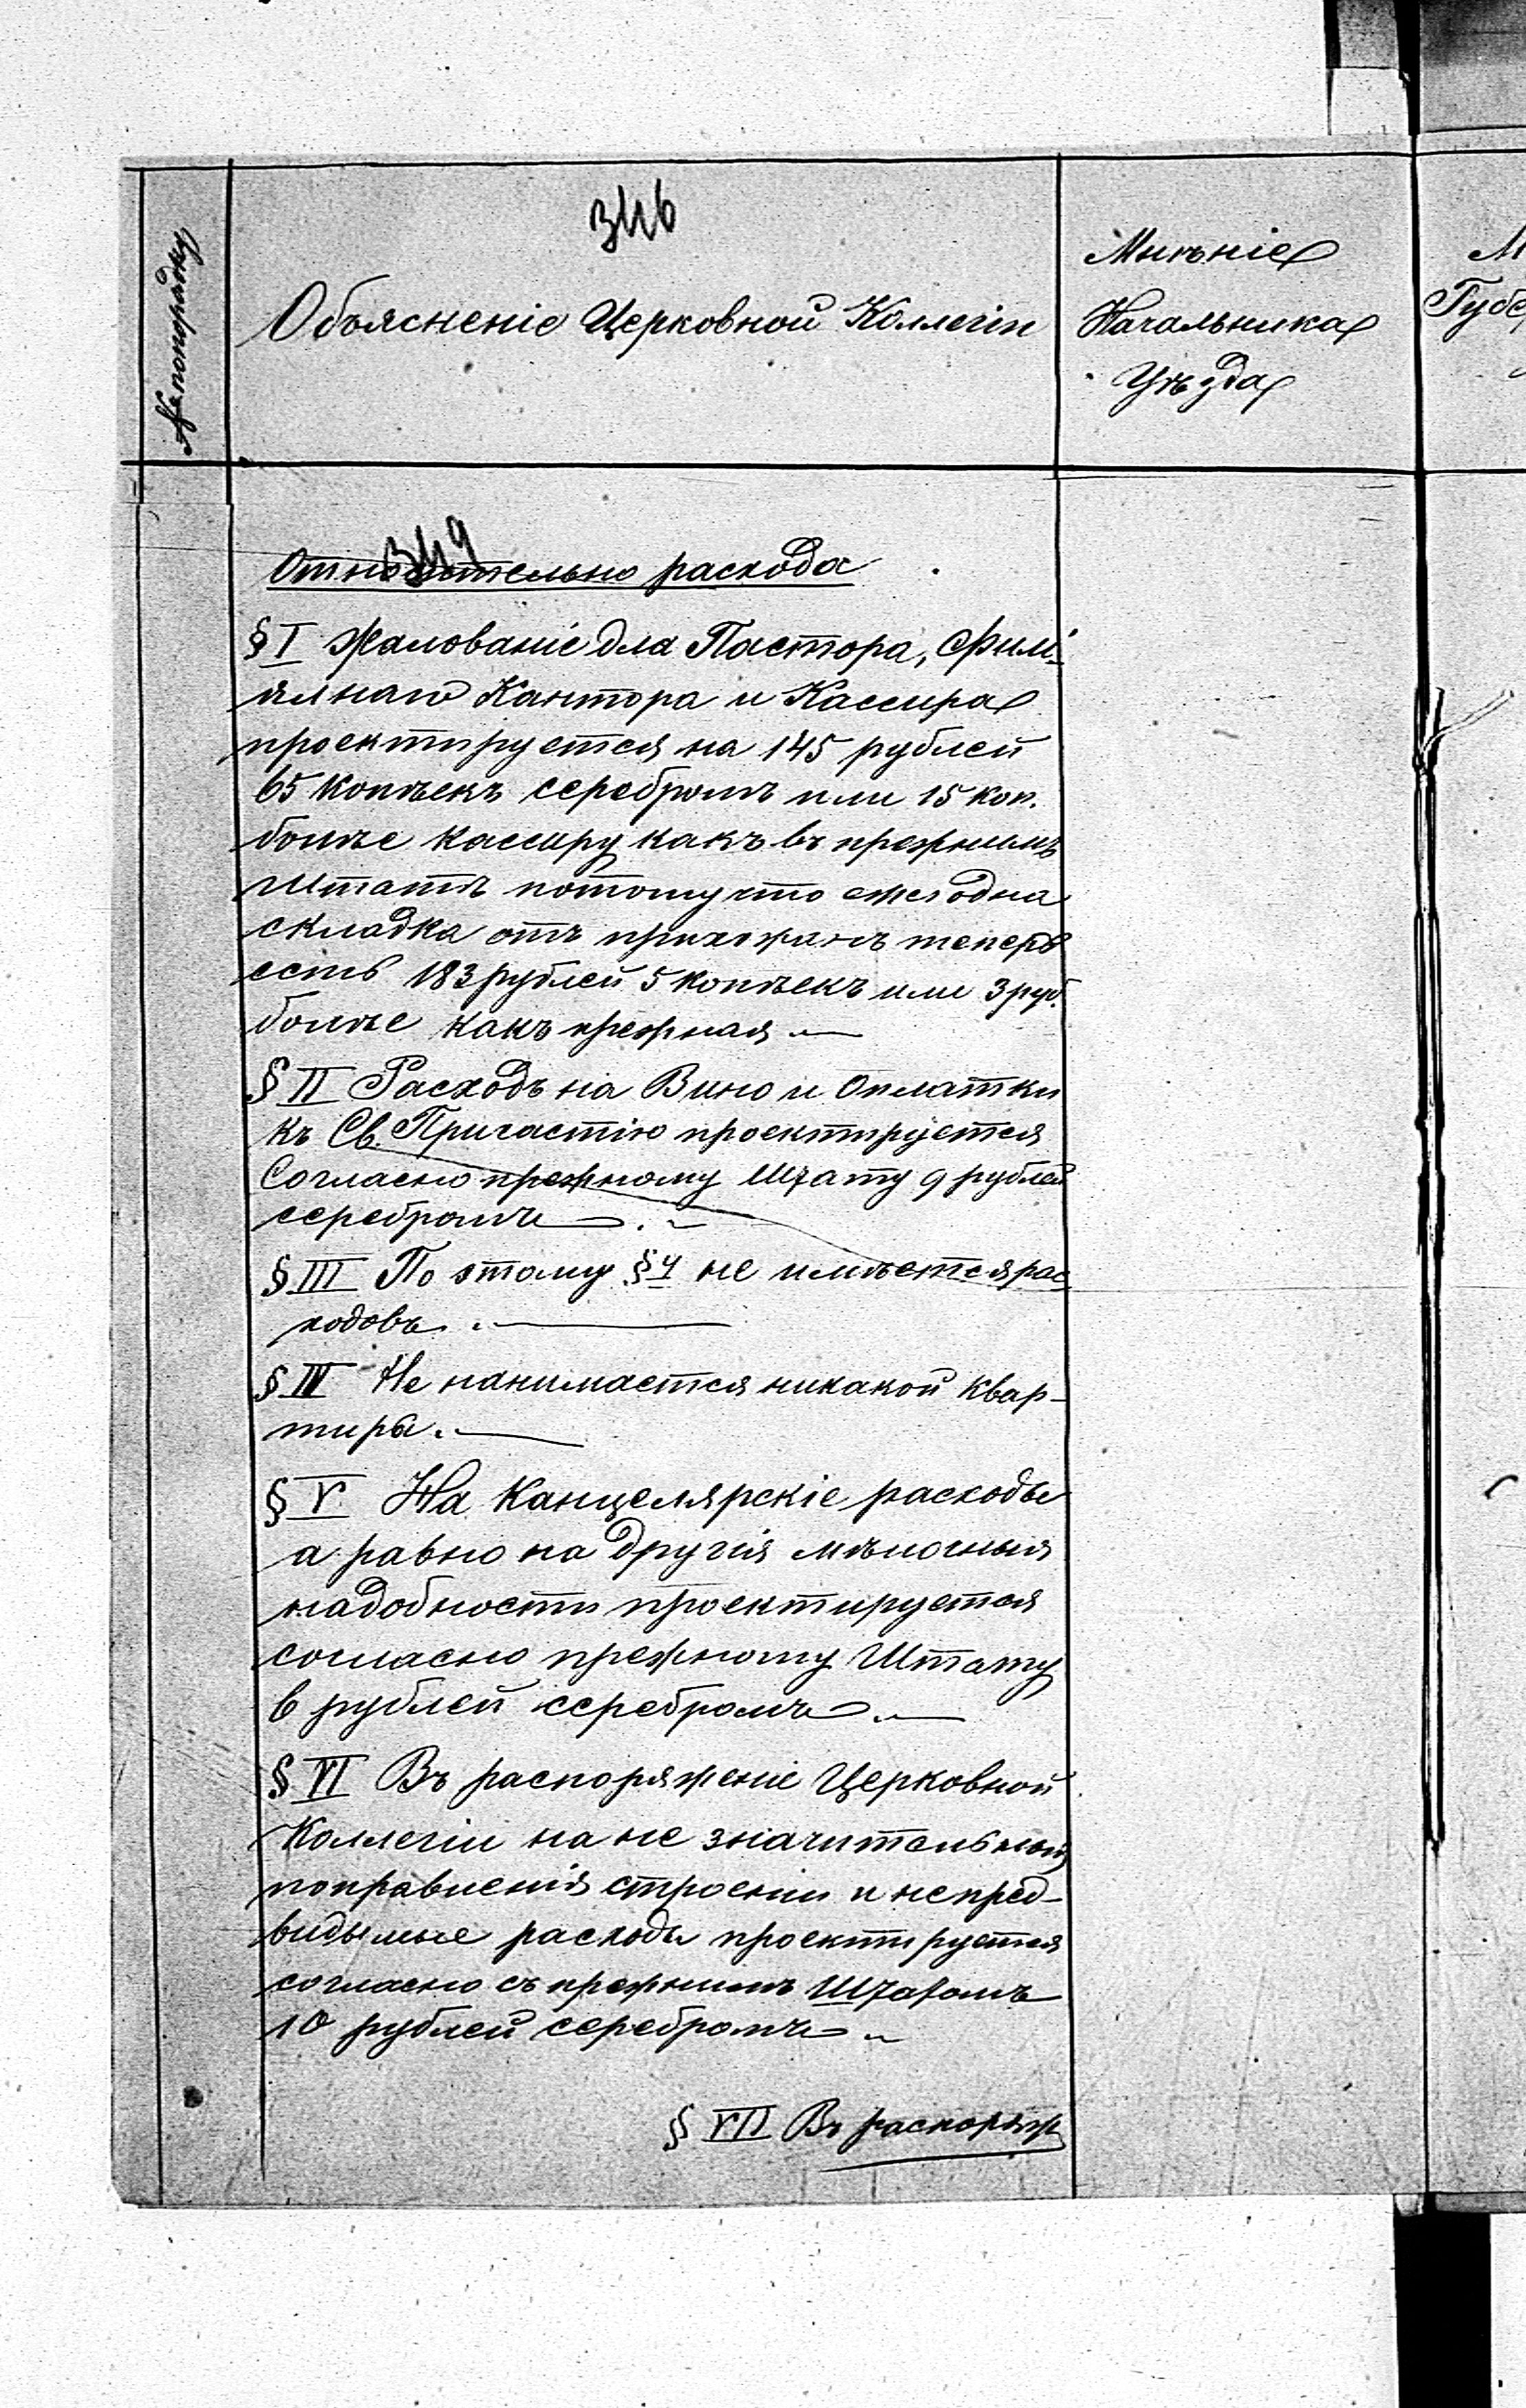 346
№ по порядку
Объясненіе Церковной Коллегіи
Мнѣніе
Начальника
Уѣзда
М
Губер
349
Относительно расхода
§ I Жалованіе для Пастора, Филі-
ялнаго Кантора и Кассира
проектируется на 145 рублей
65 копѣекъ серебромъ или 15 коп.
болѣе кассиру какъ въ прежнимъ
Штатѣ потому что ежегодна
складка отъ прихожанъ теперь
есть 183 рублей 5 копѣекъ или 3 руб.
болѣе какъ прежная —
§ II Расходъ на Вино и Оплатки
къ Св. Причастію проектируется
Согласно прежному Штату 9 рублей
серебромъ.
§ III По этому § 4 не имѣется рас-
ходовъ. —
§ IV Не нанимается никакой квар-
тиры. —
§ V На Канцелярскіе расходы
а равно на другія мѣлочныя
надобности проектируется
согласно прежному Штату
6 рублей серебромъ. —
§ VI Въ распоряженіе Церковной
Коллегіи на не значительныя
поправленія строеніи и непред-
видымые расходы проектируется
согласно съ прежнимъ Штатомъ
10 рублей серебромъ.
§ VII Въ распоряж